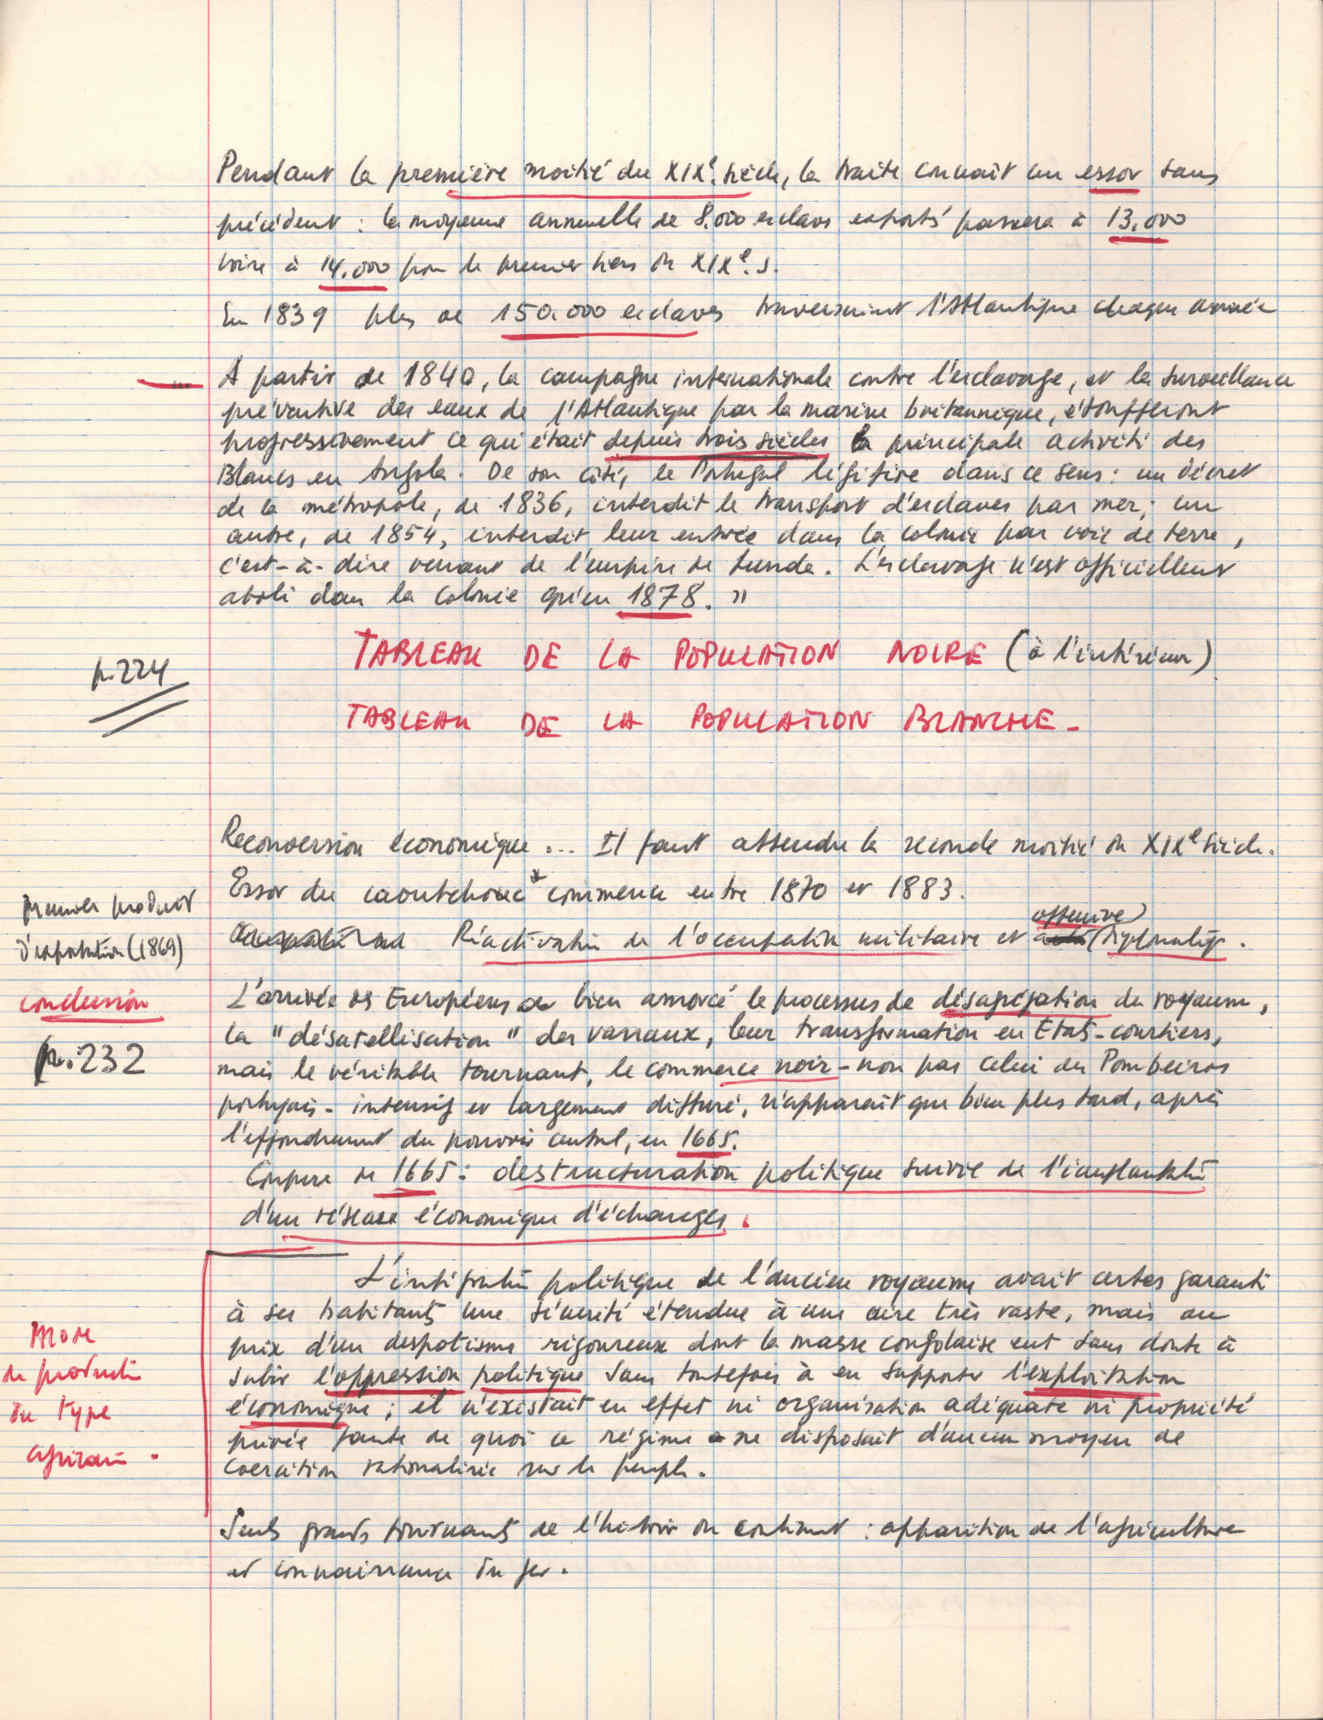 Pendant la première moitié du XIXe. siècle, la traite connaît un essor sans
précédent : la moyenne annuelle de 8.000 esclaves exportés passera à 13.000
voire à 14.000 pour le premier tiers du XIXe. s.
En 1839 plus de 150.000 esclaves traversaient l'Atlantique chaque année
A partir de 1840, la campagne internationale contre l'esclavage, et la surveillance
préventive des eaux de l'Atlantique par la marine britannique, étoufferont
progressivement ce qui était depuis trois siècles la principale activité des
Blancs en Angola. De son côté, le Portugal légifère dans ce sens : un décret
de la métropole, de 1836, interdit le transport d'esclaves par mer ; un
autre, de 1854, interdit leur entrée dans la colonie par voie de terre,
c'est-à-dire venant de l'empire de Lunda. L'esclavage n'est officiellement
aboli dans la colonie qu'en 1878. "
TABLEAU DE LA POPULATION NOIRE (à l'intérieur)
p.224
TABLEAU DE LA POPULATION BLANCHE -
Reconversion économique ... Il faut attendre la seconde moitié du XIXe siècle.
Essor du caoutchouc* commence entre 1870 et 1883.
premier produit
d'exportation (1869)
offensive
Réactivation de l'occupation militaire et diplomatiq.
conclusion
p.232
L'arrivée des Européens a bien amorcé le processus de désagrégation du royaume,
la "désatellisation" des vassaux, leur transformation en Etats-courtiers,
mais le véritable tournant, le commerce noir - non pas celui des Pombeiros
portugais - intensif et largement diffusé, n'apparaît que bien plus tard, après
l'effondrement du pouvoir central, en 1665.
Coupure de 1665 : destructuration politique suivie de l'implantation
d'un réseau économique d'échanges.
Mode
de production
du type
africain.
L'intégration politique de l'ancien royaume avait certes garanti
à ses habitants une sécurité étendue à une aire très vaste, mais au
prix d'un despotisme rigoureux dont la masse congolaise eut sans doute à
subir l'oppression politique sans toutefois à en supporter l'exploitation
économique ; il n'existait en effet ni organisation adéquate ni propriété
privée faute de quoi ce régime ne disposait d'aucun moyen de
coercition rationalisée sur le peuple.
Seuls grands tournants de l'histoire du continent : apparition de l'agriculture
et connaissance du fer.